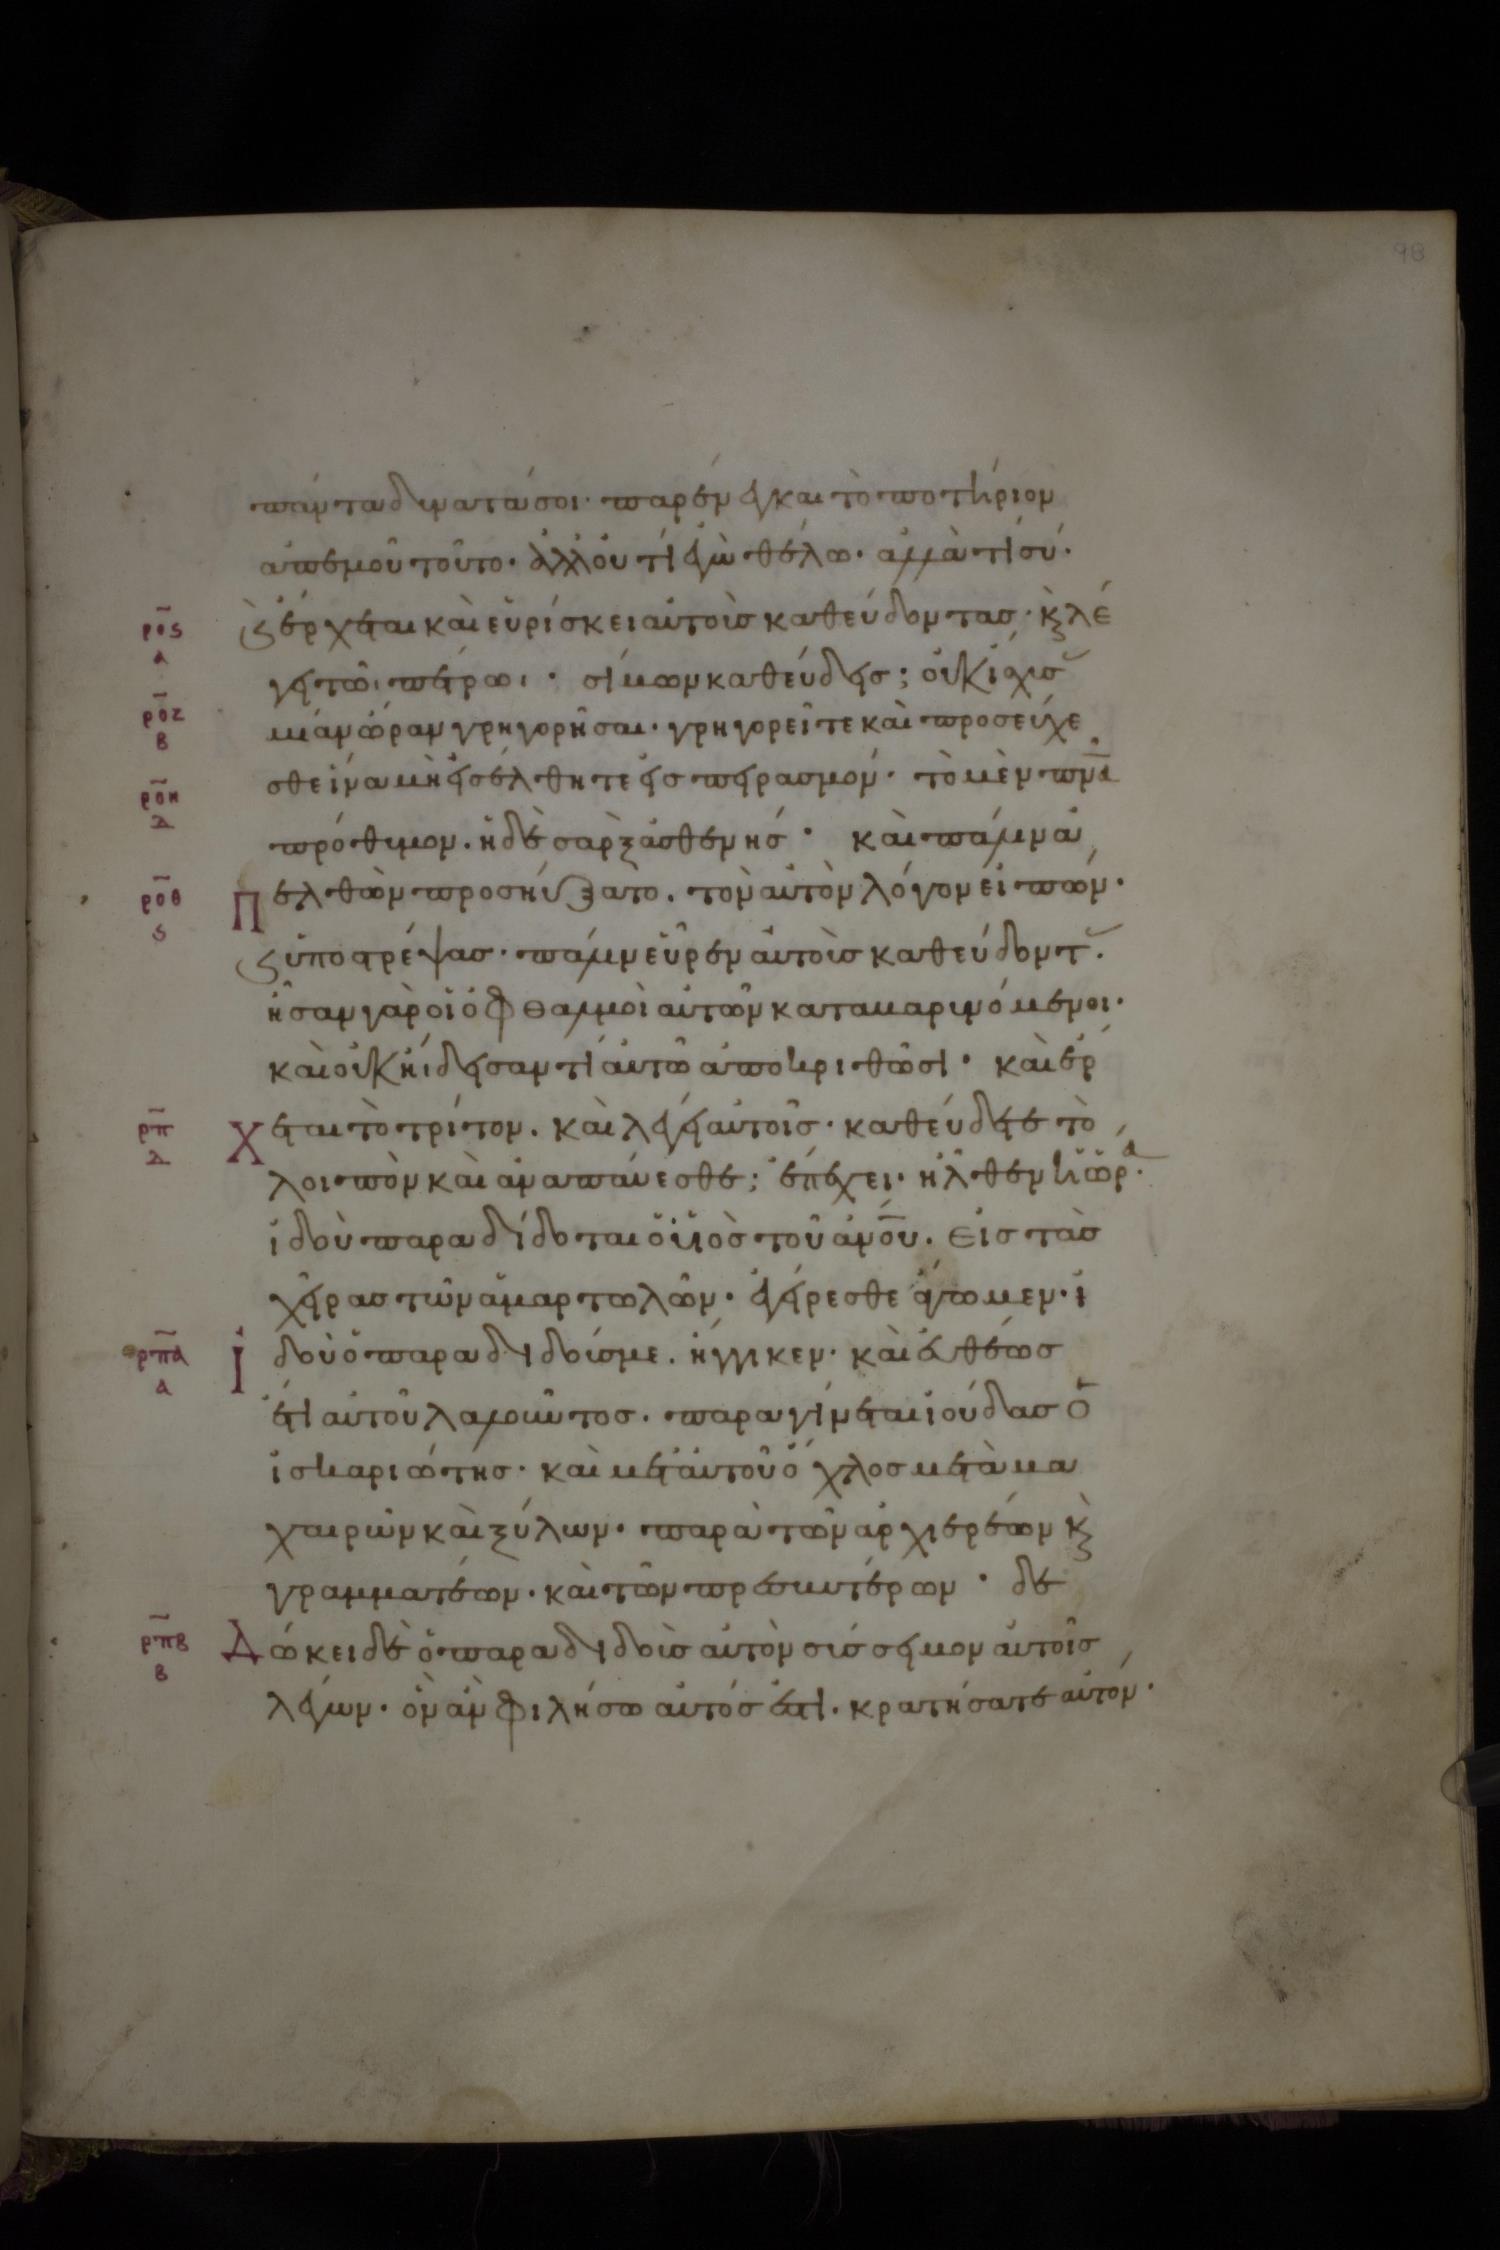 98
πάντα δυνατά σοι· παρένεγκαι τὸ ποτήριον
ἀπ ἐμοῦ τοῦτο· ἀλλ οὐ τί ἐγὼ θέλω· ἀλλὰ τί σύ·
ρος α
ϛ ἔρχεται καὶ εὑρίσκει αὐτοὺς καθεύδοντας· κ λέ
γει τῶι πέτρωι· σίμων καθεύδεις; οὐκ ἴσχυσ
ροζ β
μίαν ὥραν γρηγορῆσαι· γρηγορεῖτε καὶ προσεύχε
σθε ἵνα μὴ εἰσέλθητε εἰς πειρασμόν· τὸ μὲν πνα
ροη δ
πρόθυμον· ἡ δὲ σαρξ ἀσθενής· καὶ πάλιν ἀ
ροθ ϛ
Π ελθὼν προσηύξατο· τὸν αὐτὸν λόγον εἰπών·
ϛ ὑποστρέψας· πάλιν εὗρεν αὐτοὺς καθεύδοντ·
ἦσαν γὰρ οἱ ὀφθαλμοὶ αὐτῶν καταβαρυνόμενοι·
καὶ οὐκ ἤιδεισαν τί αὐτῶ ἀποκριθῶσι· καὶ ἔρ
ρπ δ
Χ εται τὸ τρίτον· καὶ λέγει αὐτοῖς· καθεύδετε τὸ
λοιπὸν καὶ ἀναπαύεσθε; ἀπέχει· ἦλθεν ἡ ὥρα·
ἰδοὺ παραδίδοται ὁ υἱὸς τοῦ ανου· εἰς τὰς
χεῖρας τῶν ἁμαρτωλῶν· ἐγείρεσθε ἄγωμεν· ἰ
ρπα α
Ἰ δοὺ ὁ παραδιδούς με· ἤγγικεν· καὶ εὐθέως
ἔτι αὐτοῦ λαλοῦντος· παραγίνεται ἰούδας ὁ
ἰσκαριώτης· καὶ μετ αὐτοῦ ὄχλος μετὰ μα
χαιρῶν καὶ ξύλων· παρὰ τῶν ἀρχιερέων κ
γραμματέων· καὶ τῶν πρεσβυτέρων· δε
ρπβ β
Δ ώκει δὲ ὁ παραδιδοὺς αὐτὸν σύσσημον αὐτοῖς
λέγων· ὃν ἂν φιλήσω αὐτός ἐστι· κρατήσατε αὐτόν·